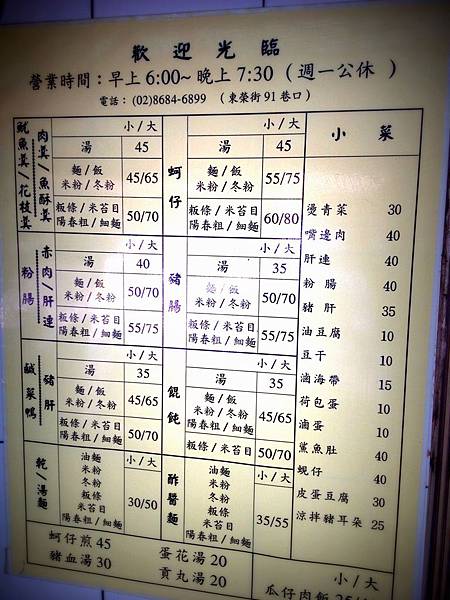 歡迎光臨
營業時間：早上 6:00~ 晚上 7:30 （週一公休 ）
電話：(02)8684-6899 （東榮街 91 巷口）
魷魚羹/花枝羹
肉羹 魚酥羹
小/大
湯 45
麵/飯
米粉/冬粉 45/65
粄條/米苔目
陽春粗/細麵 50/70
蚵仔
小/大
湯 45
麵/飯
米粉/冬粉 55/75
粄條/米苔目
陽春粗/細麵 60/80
粉腸
赤肉/肝連
小/大
湯 40
麵/飯
米粉/冬粉 50/70
粄條/米苔目
陽春粗/細麵 55/75
豬腸
小/大
湯 35
麵/飯
米粉/冬粉 50/70
粄條/米苔目
陽春粗/細麵 55/75
鹹菜鴨
豬肝
小/大
湯 35
麵/飯
米粉/冬粉 45/65
粄條/米苔目
陽春粗/細麵 50/70
餛飩
小/大
湯 35
麵/飯
米粉/冬粉
陽春粗/細麵 45/65
粄條/米苔目 50/70
乾/湯麵
油麵
米粉
冬粉
粄條
米苔目
陽春粗/細麵
小/大
30/50
酢醬麵
油麵
米粉
冬粉
粄條
米苔目
陽春粗/細麵
小/大
35/55
小菜
燙青菜 30
嘴邊肉 40
肝連 40
粉腸 40
豬肝 35
油豆腐 10
豆干 10
滷海帶 15
荷包蛋 10
滷蛋 10
鯊魚肚 40
蜆仔 40
皮蛋豆腐 30
涼拌豬耳朵 25
蚵仔煎 45 蛋花湯 20
豬血湯 30 貢丸湯 20
小/大
瓜仔肉飯